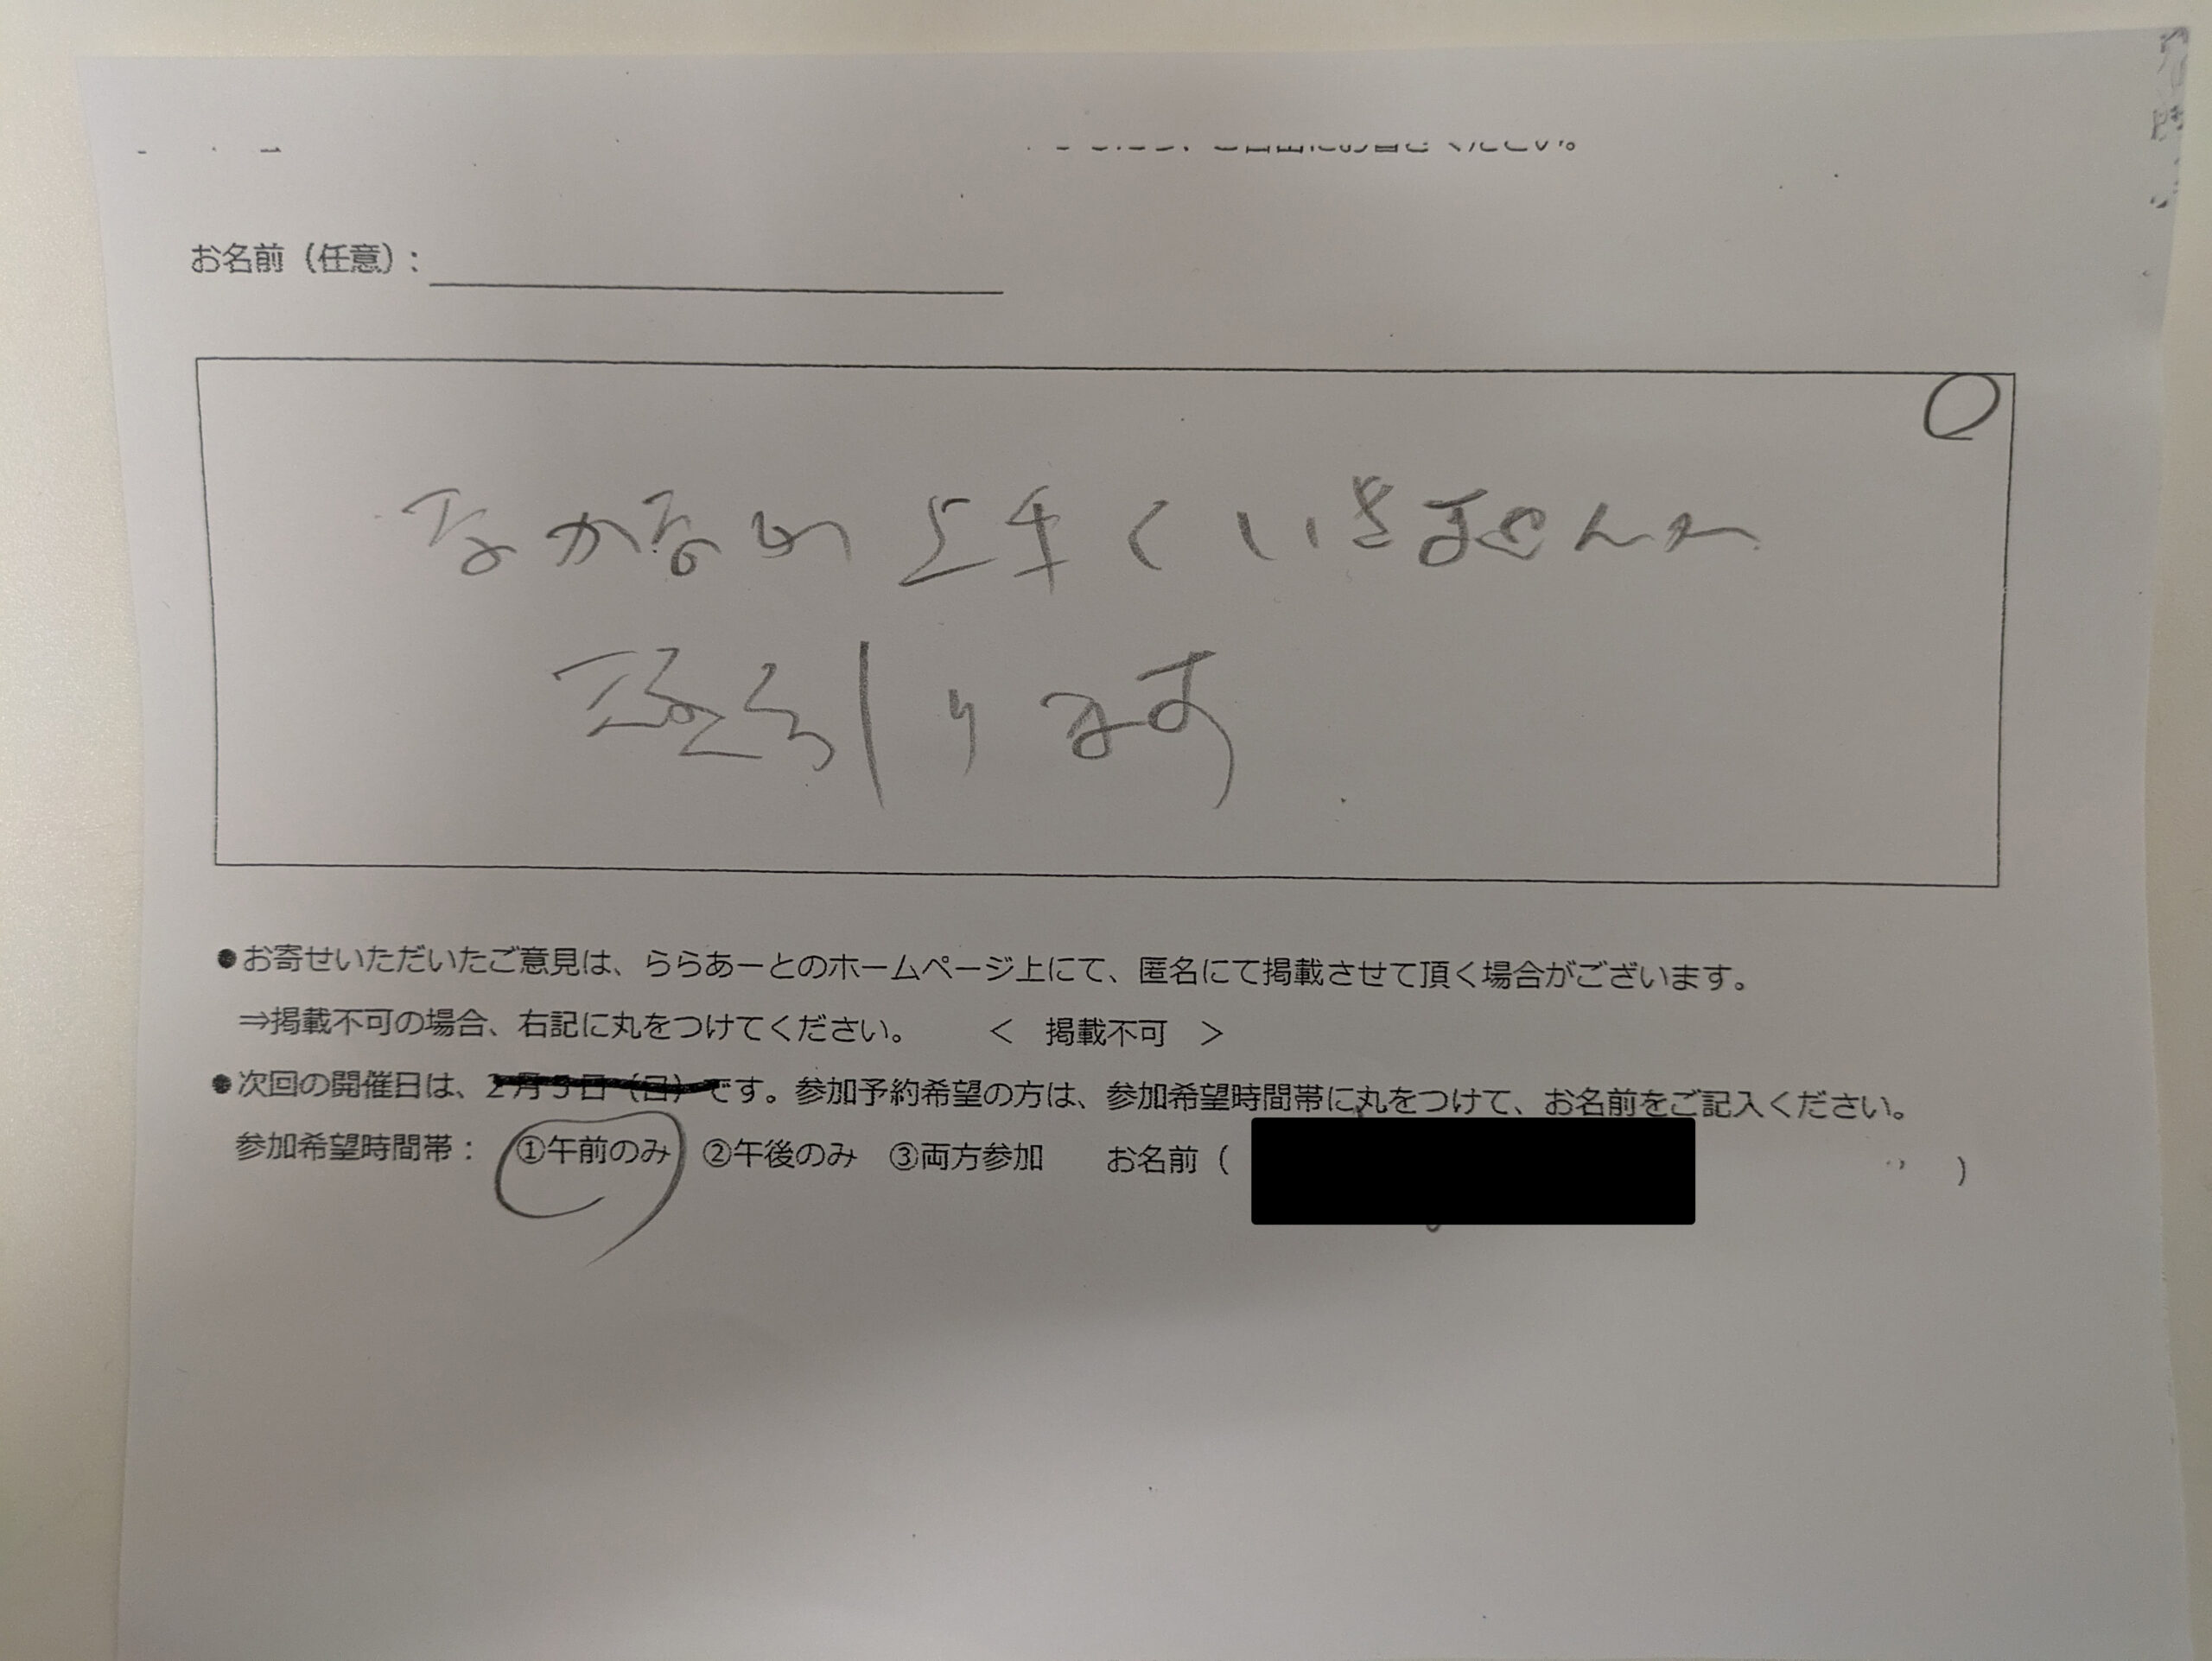 お名前（任意）：
なかなか上手くいきませんが
頑張ります
●お寄せいただいたご意見は、ららあーとのホームページ上にて、匿名にて掲載させて頂く場合がございます。
⇒掲載不可の場合、右記に丸をつけてください。　＜　掲載不可　＞
●次回の開催日は、2月5日（日）です。参加予約希望の方は、参加希望時間帯に丸をつけて、お名前をご記入ください。
参加希望時間帯：　①午前のみ　②午後のみ　③両方参加　お名前（　）